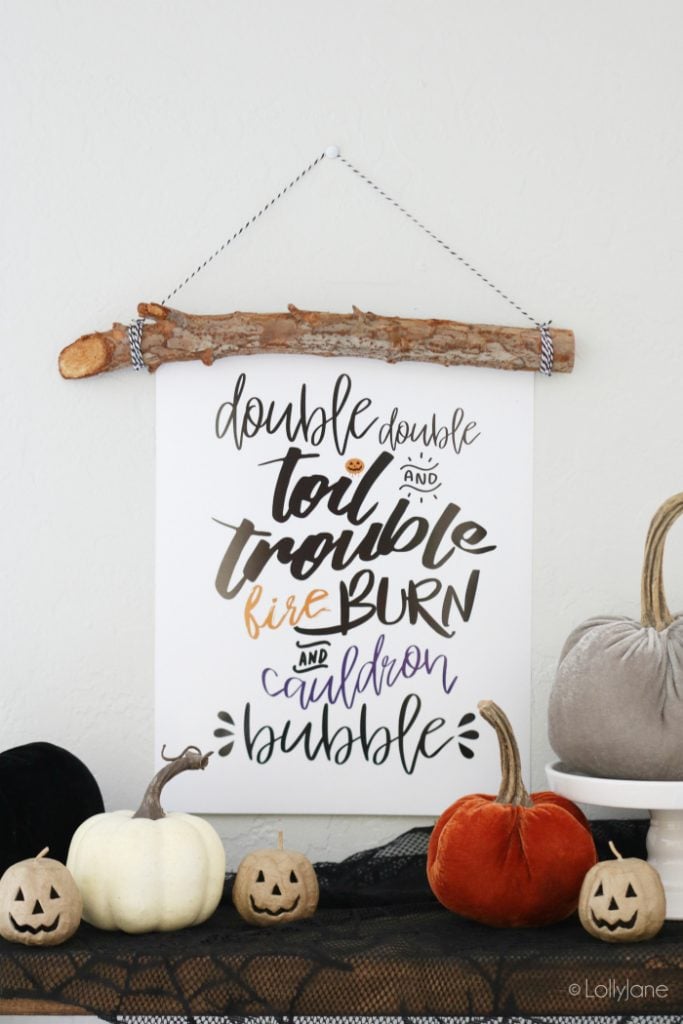 double double
toil AND
trouble
fire BURN
AND
cauldron
bubble
© LollyJane